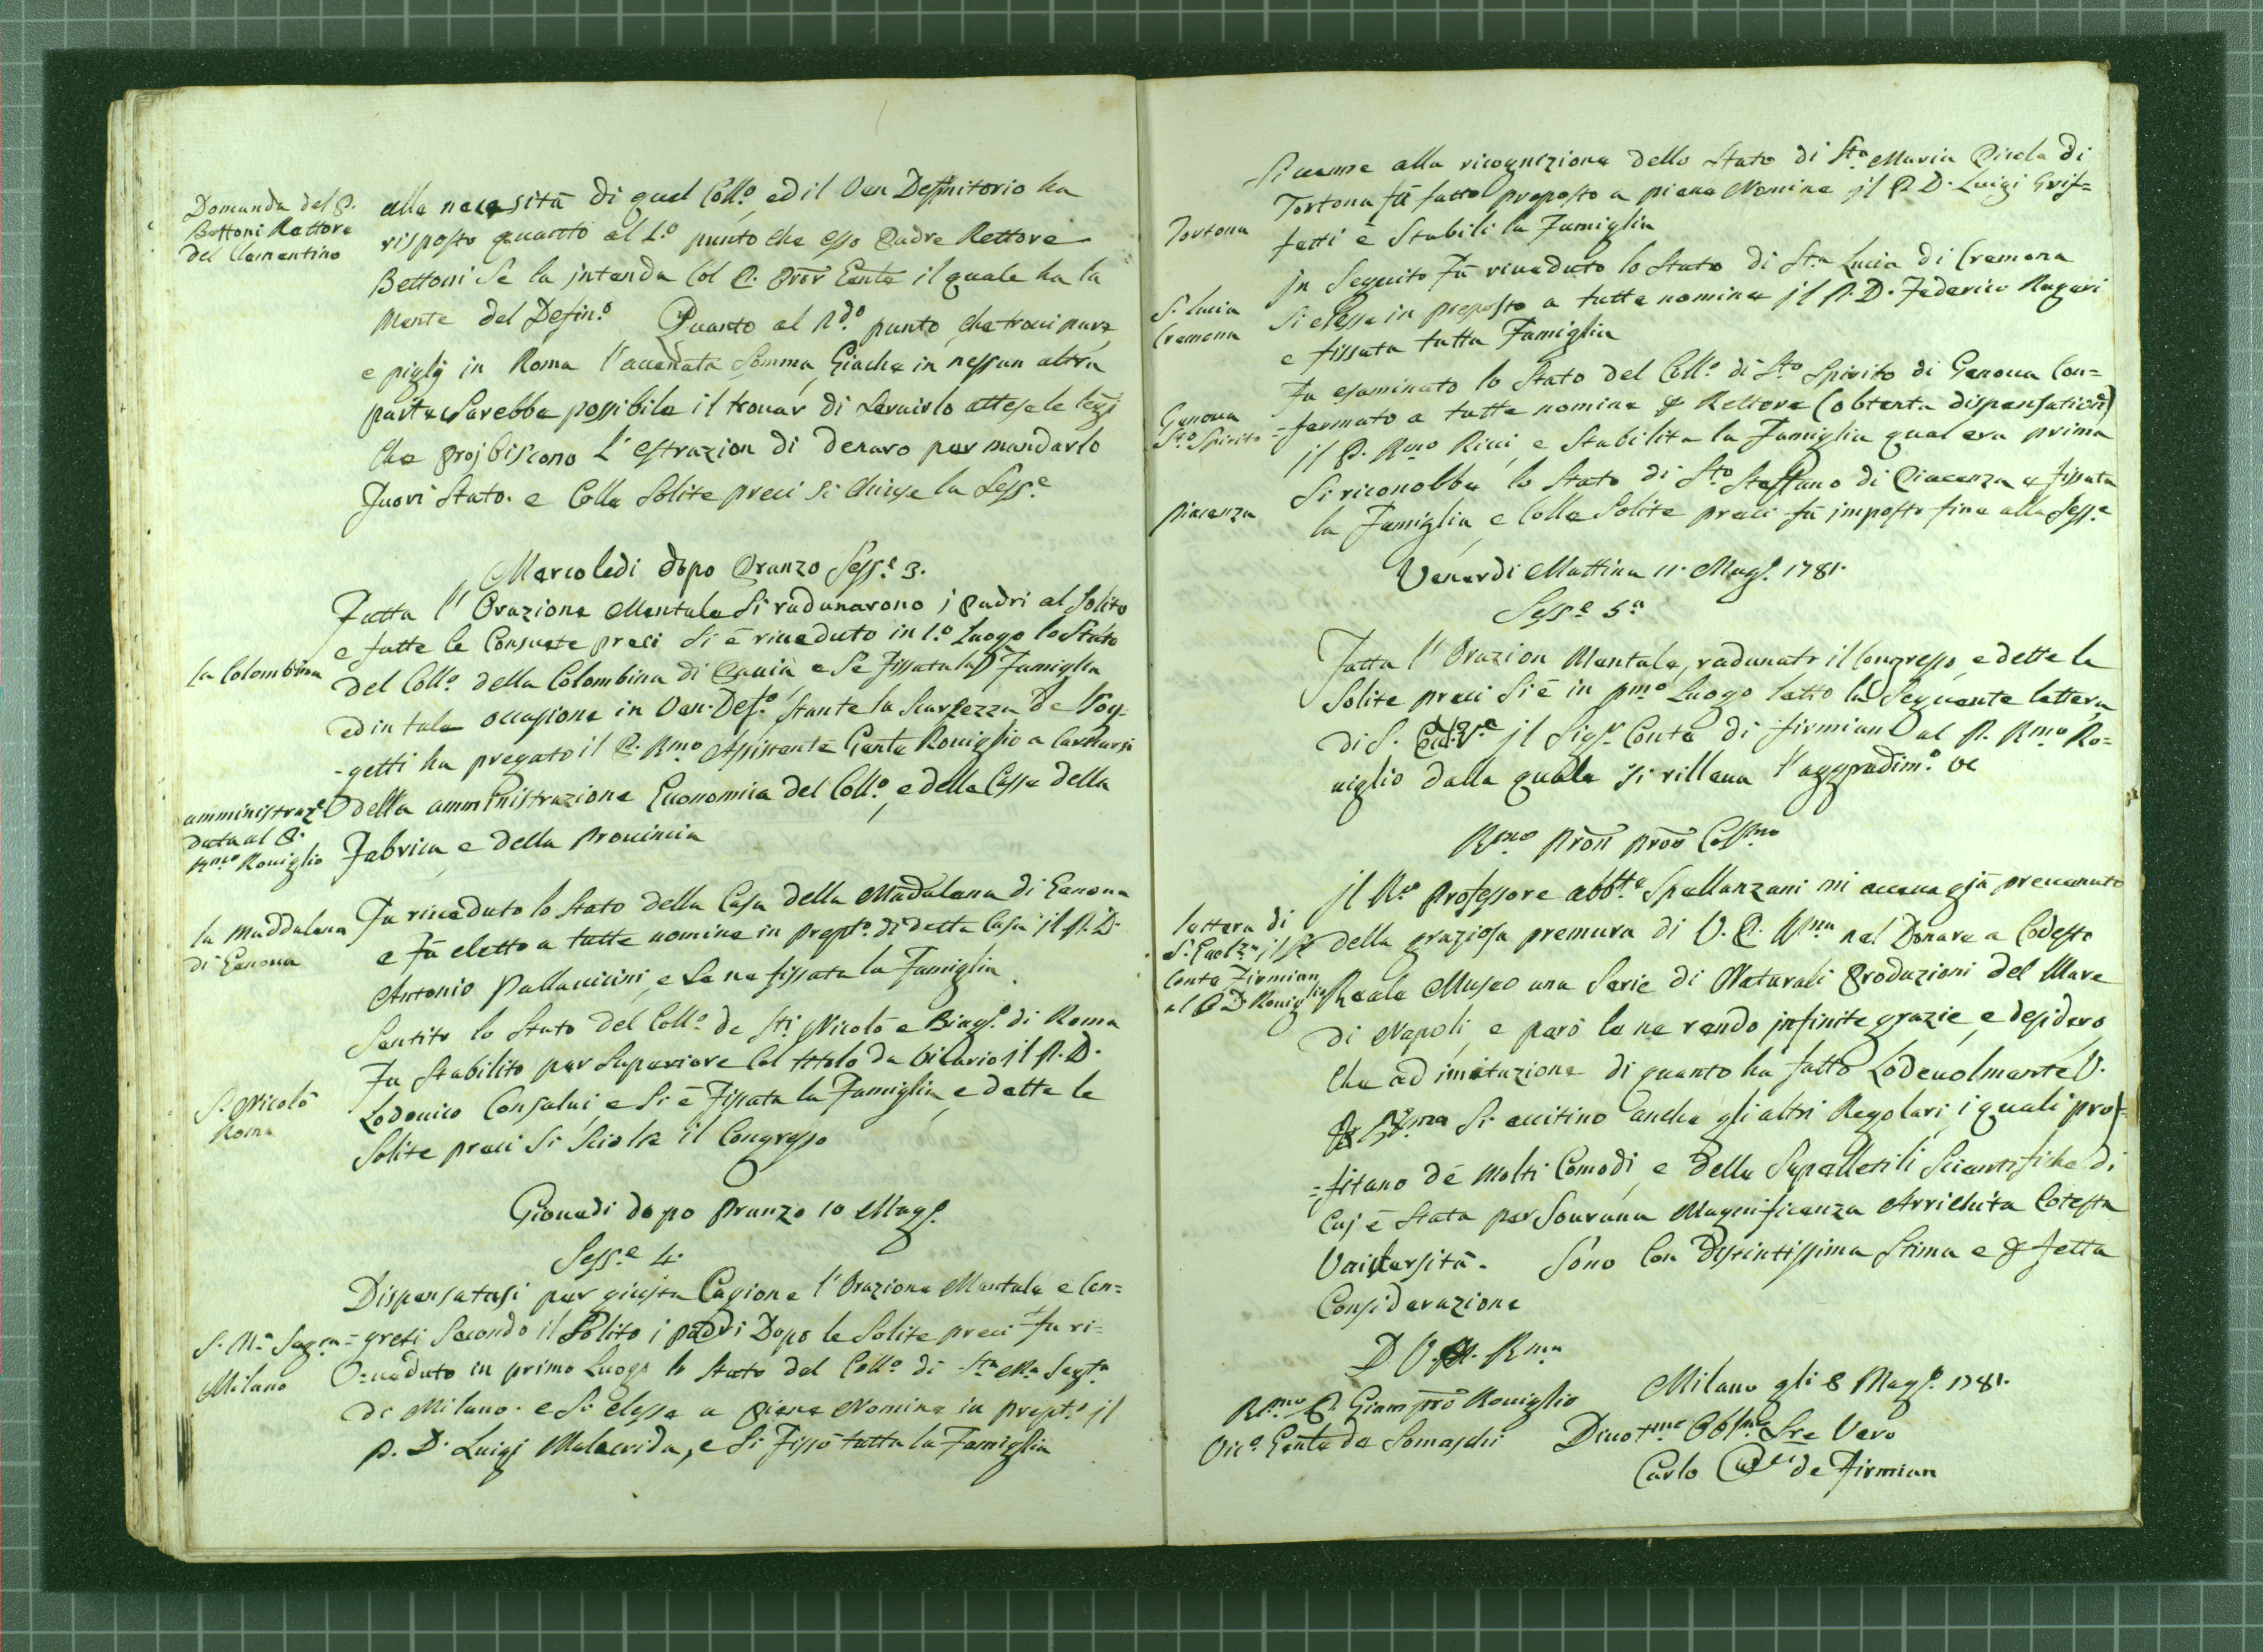 Domanda del P.
Bettoni Rettore
del Clementino
alla necessità di quel Coll.o ed il Ven Deffinitorio ha
risposto quanto al 1.o punto che esso Padre Rettore
Bettoni Se la jntenda Col P. Pror Genle il quale ha la
Mente del Defin.o Quanto al 2do punto, che trovi pure
e pigly in Roma l'accenata Somma, Giache in nessun altra
parte Sarebbe possibile il trovar di Servirlo attese le legj
che projbiscono L'estrazion di denaro per mandarlo
Fuori Stato. e Colle Solite preci Si Chiuse la Sess.e
Mercoledi dopo Pranzo Sess.e 3.
Fatta l'Orazione Mentale Si radunarono j Padri al Solito
e fatte le Consuete preci Si è riveduto in 1.o Luogo lo Stato
la Colombina
del Coll.o della Colombina di Pavia e Se Fissata la Famiglia
ed in tale occasione in Ven. Def.o Stante la Scarsezza de Sog-
-getti ha pregato il P. Rmo Assistente Genle Roviglio a Carricarsi
amministraz.e
data al P.
Rmo Roviglio
della amministrazione Economica del Coll.o, e della Cassa della
Fabrica, e della Provincia
la Maddalena
di Genova
Fu riveduto lo Stato della Casa della Madalena di Genova
e fù eletto a tutte nomine in prept.o di detta Casa il P. D.
Antonio Pallavicini, e Se ne fissata la Famiglia
S. Nicolò
Roma
Sentito lo Stato del Coll.o de Sti Nicolò e Biag.o di Roma
Fu Stabilito per Superiore Col titolo da Vicario il P. D.
Lodovico Consalvi e Si è Fissata la Famiglia e dette le
Solite preci Si Sciolse il Congresso
Giovedi dopo Pranzo 10 Mag.o
Sess.e 4.
Dispensatasi per giusta Cagione l'Orazione Mentale e Con=
S. Ma Segra
Milano
=greti Secondo il Solito j padri Dopo le Solite preci fu ri=
=veduto in primo Luogo lo Stato del Coll.o di Sta Ma Segta
di Milano. e Si elesse a piene Nomine in prept.o il
P. D. Luigi Malacrida, e Si Fissò tutta la Famiglia
Si venne alla ricognizione dello Stato di Sta Maria Picola di
Tortona
Tortona fù fatto preposto a piene Nomine jl P. D. Luigi Grif=
fetti e Stabilì la Famiglia
S. Lucia
Cremona
Jn Seguito Fù riveduto lo Stato di Sta Lucia di Cremona
Si elesse in preposto a tutte nomine jl P. D. Federico Rugeri
e fissata tutta Famiglia
Genova
Sto Spirito
Fu esaminato lo Stato del Coll.o di Sto Spirito di Genova Con=
=fermato a tutte nomine p Rettore (obtenta dispensation)
jl P. Rmo Ricci, e Stabilita la Famiglia qual era prima
Piacenza
Si riconobbe lo Stato di Sto Steffano di Piacenza e fissata
la Famiglia, e Colle Solite preci fù imposto fine alla Sess.e
Venerdi Mattina 11. Mag.o 1781.
Sess.e 5.a
Fatta l'Orazion Mentale, radunato il Congresso, e dette le
Solite preci Si è in pmo Luogo letto la Seguente lettera
di S. jl Sigr Conte di Firmian al P. Rmo Ro=
viglio dalla quale si rilleva l'aggradim.o ve
Rmo Pron Pron Colmo
lettera di
S. jl
Conte Firmian
al P D Roviglio
jl R.o Professore abbte Spallanzani mi aveva già prevenuto
della graziosa premura di V. P. Rma nel Donare a Codesto
Reale Museo una Serie di Naturali Produzioni del Mare
di Napoli, e però le ne rendo jnfinite grazie, e desidero,
Che ad imitazione di quanto ha fatto Lodevolmente V.
P. Rma Si eccitino anche gli altri Regolari, i quali prof=
=fitano de Molti Comodi, e delle Supelletili Scientifiche di
Cuj è Stata per Sovrana Magnificenza Arrichita Cotesta
Università. Sono Con distintissima Stima e pfetta
Considerazione
D. V. P. Rma
Milano gli 8 Mag.o 1781.
Rmo P. Giampro Roviglio
Vic.o Genle de Somaschi
Divotmo Obbmo Sre Vero
Carlo de Firmian